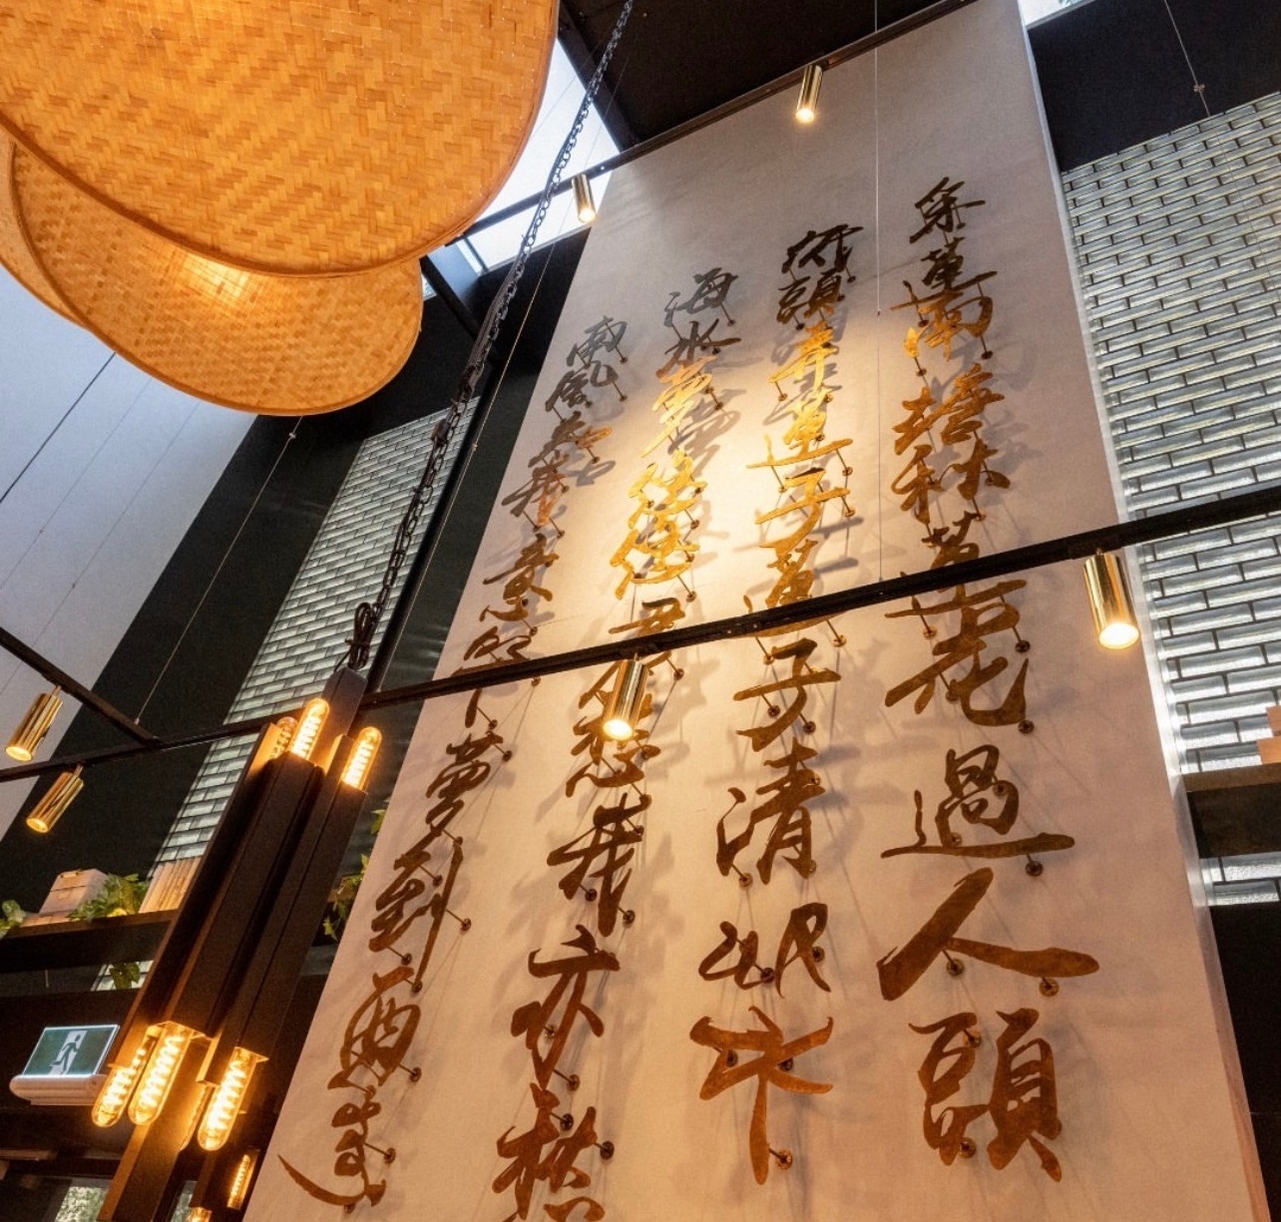 采蓮南塘秋蓮花過人頭
低頭弄蓮子蓮子清如水
海水夢悠悠君愁我亦愁
南風知我意吹夢到西